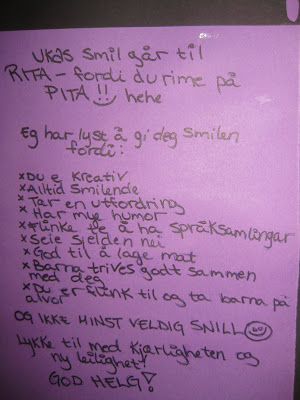 UKAS Smil går til
RITA - fordi du rime på
PITA!! hehe
Eg har lyst å gi deg Smilen
fordi:
* Du e kreativ
* Alltid Smilende
* Tar en utfordring
* Har mye humor
* Flinke te å ha språksamlingar
* Seie sjelden nei
* God til å lage mat
* Barna trives godt sammen
med deg
* Du er flink til og ta barna på
alvor
OG IKKE MINST VELDIG SNILL
Lykke til med Kjærligheten og
ny leilighet!
GOD HELG!